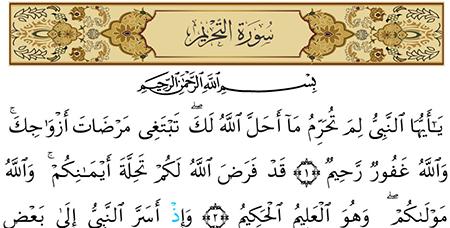 سُورَةُ التَّحْرِيمِ
بِسْمِ اللَّهِ الرَّحْمَٰنِ الرَّحِيمِ
يَٰٓأَيُّهَا ٱلنَّبِىُّ لِمَ تُحَرِّمُ مَآ أَحَلَّ ٱللَّهُ لَكَ ۖ تَبْتَغِى مَرْضَاتَ أَزْوَٰجِكَ ۚ
وَٱللَّهُ غَفُورٌ رَّحِيمٌ ﴿١﴾ قَدْ فَرَضَ ٱللَّهُ لَكُمْ تَحِلَّةَ أَيْمَٰنِكُمْ ۚ وَٱللَّهُ
مَوْلَىٰكُمْ ۖ وَهُوَ ٱلْعَلِيمُ ٱلْحَكِيمُ ﴿٢﴾ وَإِذْ أَسَرَّ ٱلنَّبِىُّ إِلَىٰ بَعْضِ